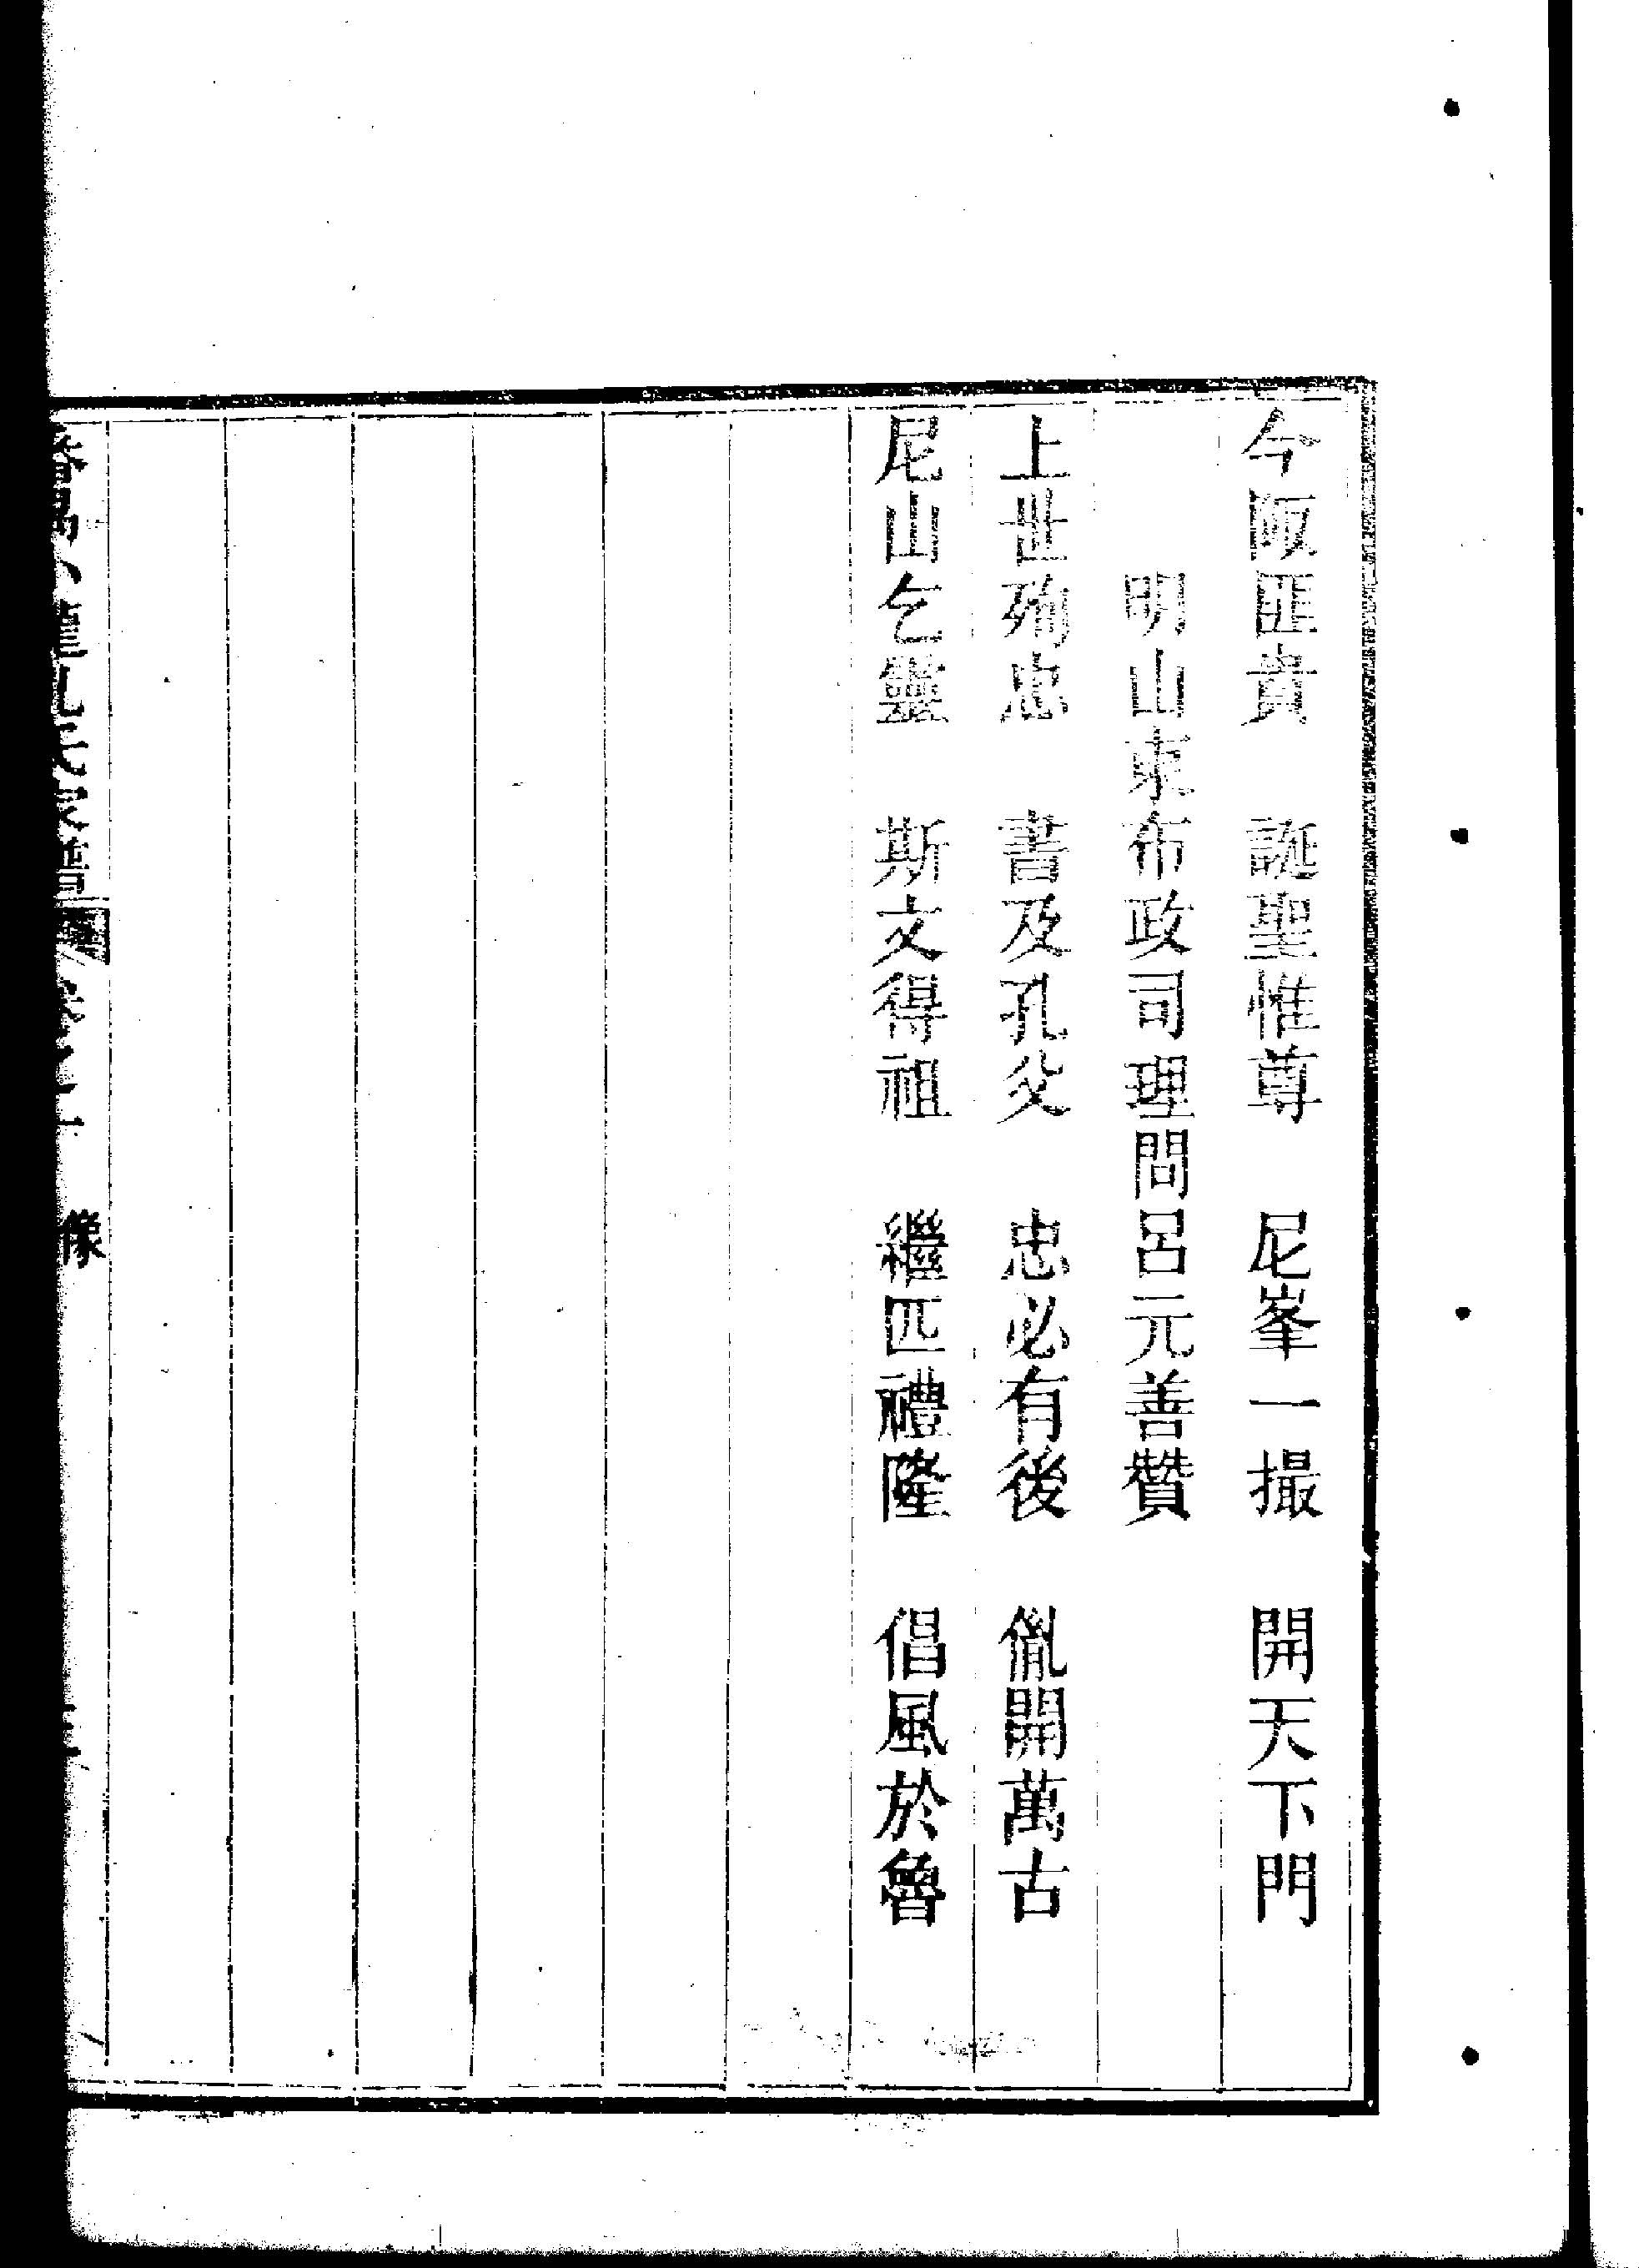 今阪匪貴　誕聖惟尊　尼峯一撮　開天下門
明山東布政司理問呂元善贊
上世殉忠　書及孔父　忠必有後　㣧開萬古
尼山乞靈　斯文得祖　繼匹禮隆　倡風於魯
像